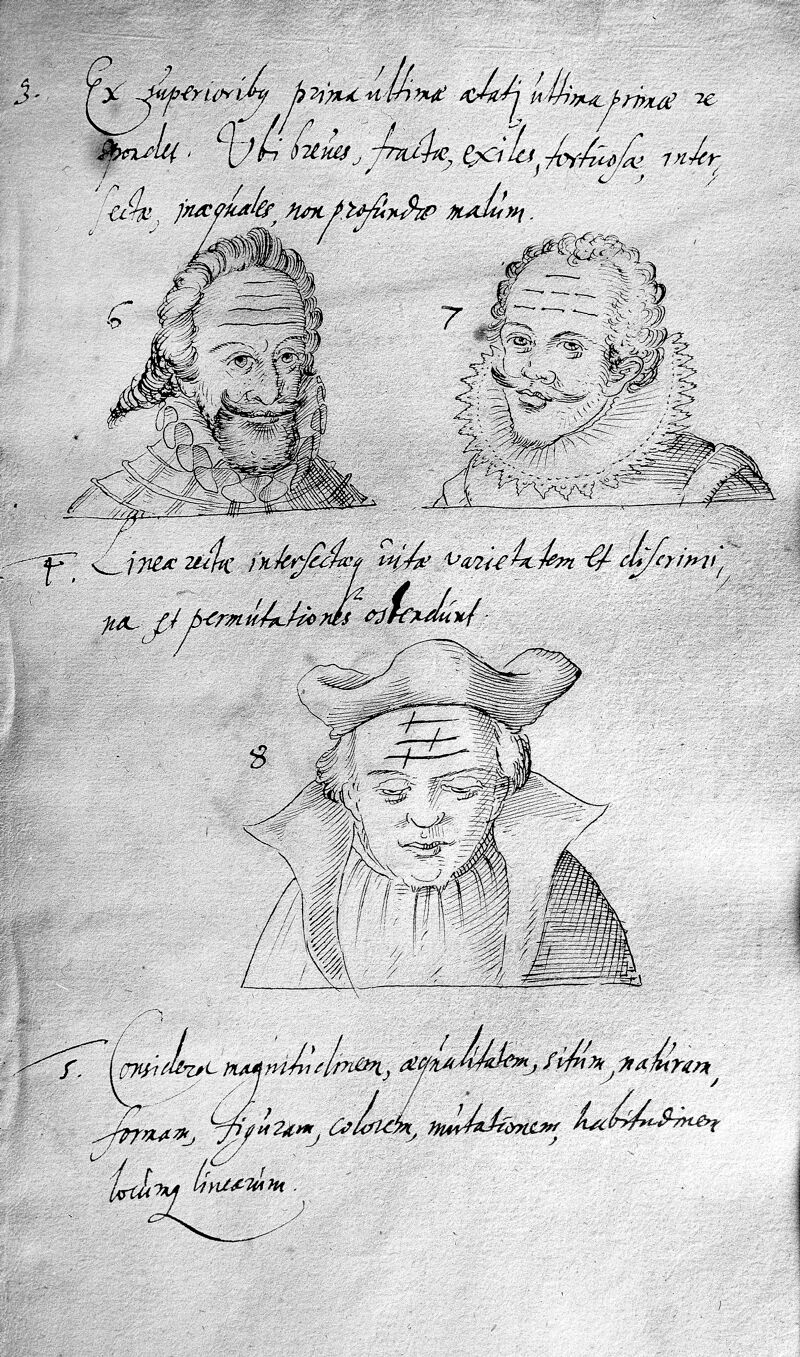 3. Ex superioribq prima ultimæ ætati ultima primæ re
spondet. Ubi breues, fractæ, exiles, tortuosæ, inter-
sectæ, inæquales, non profundæ malum.
6
7
4. Lineæ rectæ intersectæq uitæ varietatem et discrimi,
na et permutationes ostendunt
8
5. Considera magnitudinem, æqualitatem, situm, naturam,
formam, figuram, colorem, mutationem, habitudinem
locumq linearum.